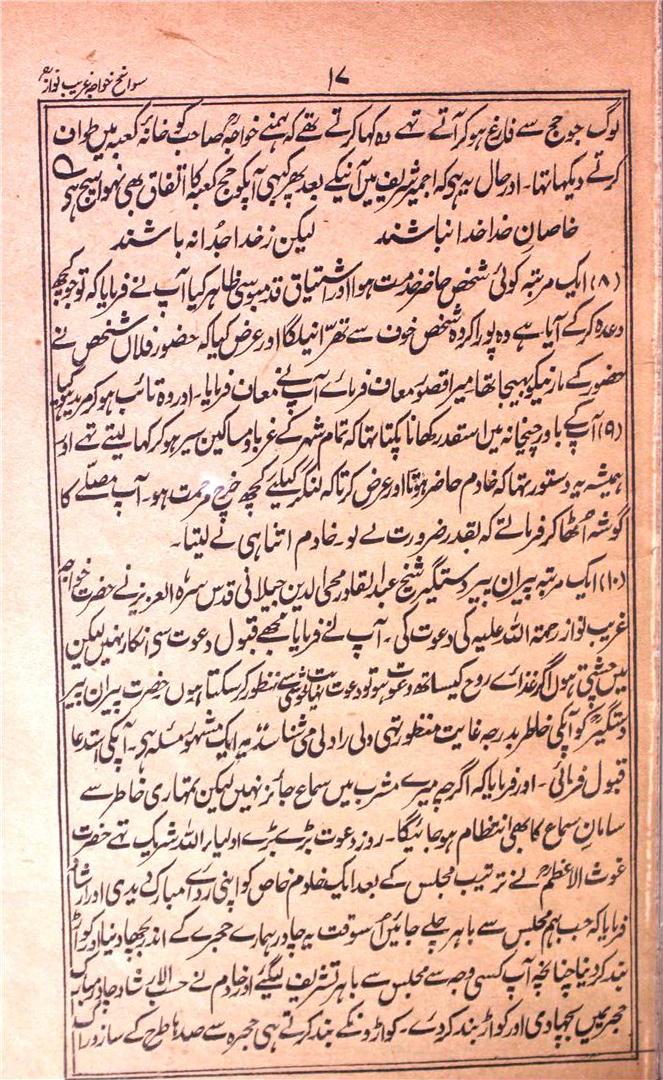 سوانح خواجہ غریب نواز
۱۷
لوگ جو حج سے فارغ ہو کر آتے تہے وہ کہا کرتے تھے کہ ہمنے خواجہ صاحب کو خانۂ کعبہ میں طواف
کرتے دیکہا تہا۔ اور حال یہ ہی کہ اجمیر شریف میں آنیکے بعد پھر کبہی آپکو حج کعبہ کا اتفاق بھی نہوا سچ ہی
خاصانِ خدا خدا نباشند لیکن ز خدا جُدا نہ باشند
(۸) ایک مرتبہ کوئی شخص حاضر خدمت ہوا اور اشتیاق قدمبوسی ظاہر کیا آپ نے فرمایا کہ تو جو کچھ
وعدہ کر کے آیا ہے وہ پورا کر وہ شخص خوف سے تھرّانیلگا اور عرض کیا کہ حضور فلاں شخص نے
حضور کے مارنیکو بہیجا تھا میرا قصور معاف فرمائے آپ نے معاف فرمایا۔ اور وہ تائب ہو کر مرید ہو گیا
(۹) آپ کے باورچیخانہ میں اسقدر کھانا پکتا تہا کہ تمام شہر کے غربا و مساکین سیر ہو کر کہا لیتے تہے اور
ہمیشہ یہ دستور تہا کہ خادم حاضر ہوتا اور عرض کرتا کہ لنگر کیلیے کچھ خرچ مرحمت ہو۔ آپ مصلّے کا
گوشہ اُٹھا کر فرماتے کہ بقدر ضرورت لے لو۔ خادم اتنا ہی لے لیتا۔
(۱۰) ایک مرتبہ پیران پیر دستگیر شیخ عبدالقادر محی الدین جیلانی قدس سرہ العزیز نے حضرت خواجہ
غریب نواز رحمۃ اللہ علیہ کی دعوت کی۔ آپ نے فرمایا مجھے قبول دعوت سی انکار نہیں لیکن
میں چشتی ہوں اگر غذائے روح کیساتھ دعوت ہو تو دعوت نہایت خوشی سے منظور کر سکتا ہوں حضرت پیران پیر
دستگیر کو آپکی خاطر بدرجہ غایت منظور تہی ولی را ولی می شناسد یہ ایک مشہور مسئلہ ہی۔ آپکی استدعا
قبول فرمائی۔ اور فرمایا کہ اگرچہ میرے مشرب میں سماع جائز نہیں لیکن تمہاری خاطر سے
سامان سماع کا بھی انتظام ہو جائیگا۔ روز دعوت بڑے بڑے اولیاء اللہ شریک تہے حضرت
غوث الاعظم نے ترتیب مجلس کے بعد ایک خادم خاص کو اپنی ردائے مبارک دیدی اور ارشاد
فرمایا کہ جب ہم مجلس سے باہر چلے جائیں اُسوقت یہ چادر ہمارے حجرے کے اندر بچھا دینا اور کواڑ
بند کر دینا چنانچہ آپ کسی وجہ سے مجلس سے باہر تشریف لیگئے اور خادم نے حسب الارشاد چادر مبارک
حجریمیں بچھا دی اور کواڑ بند کر دے۔ کواڑونکے بند کرتے ہی حجرہ سے صدہا طرح کے ساز و راگ